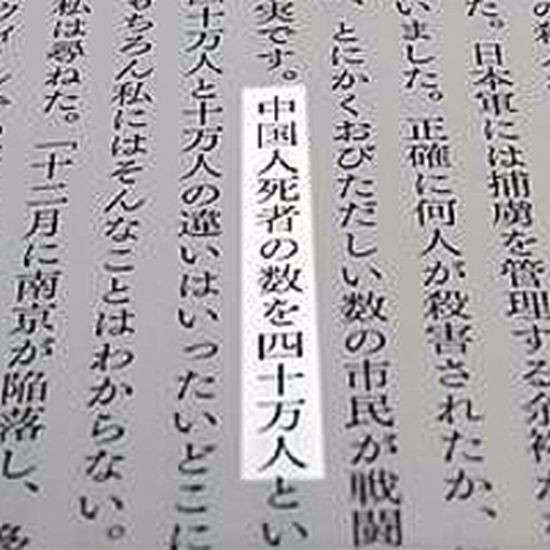 た。日本軍には捕虜を管理する余裕が
いました。正確に何人が殺害されたか、
、とにかくおびただしい数の市民が戦闘
実です。中国人死者の数を四十万人とい
四十万人と十万人の違いはいったいどこに
もちろん私にはそんなことはわからない。
私は尋ねた。「十二月に南京が陥落し、多